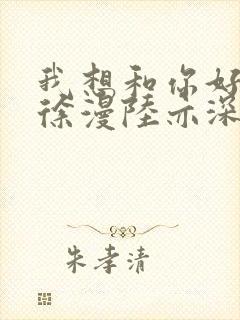 我想和你好
徐漫陆亦深
朱孝清